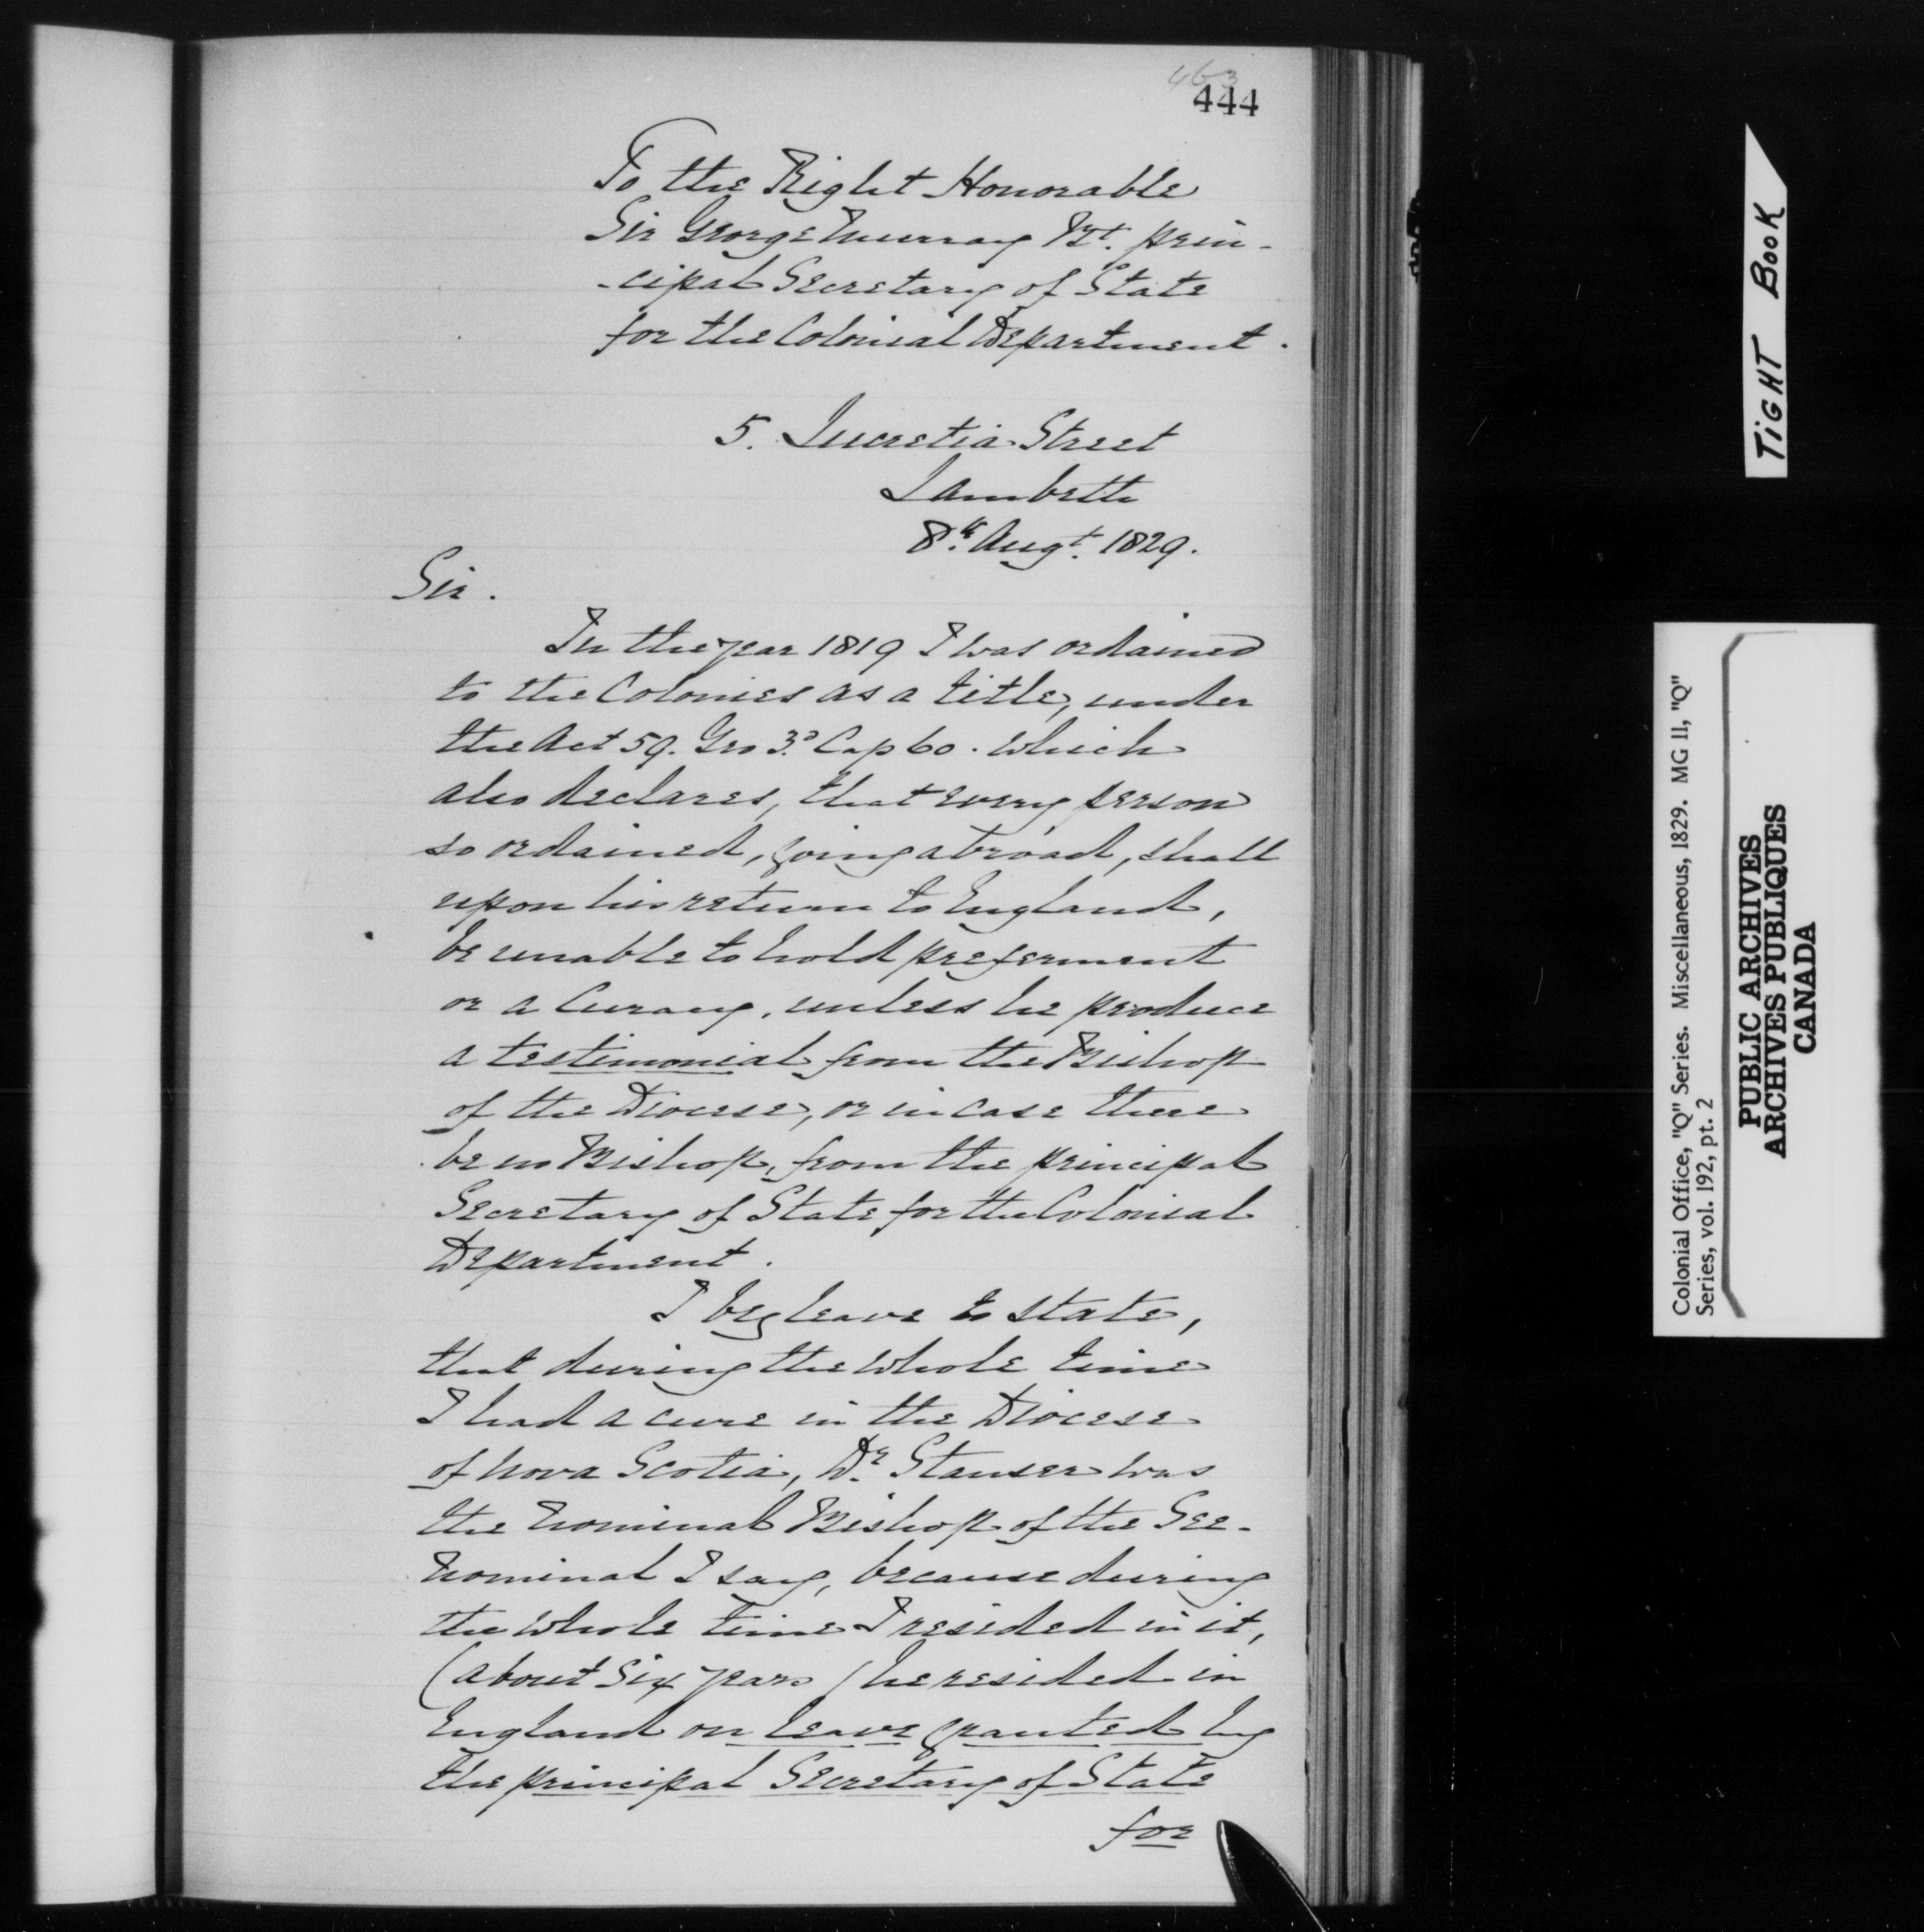 463
444
To the Right Honorable
Sir George Murray Bt. prin-
-cipal Secretary of State
for the Colonial Department.
5. Lucretia Street
Lambeth
8th Augt. 1829.
Sir.
In the year 1819 I was ordained
to the Colonies as a title, under
the Act 59. Geo 3.d Cap 60. which
also declares, that every person
so ordained, going abroad, shall
upon his return to England,
be unable to hold preferment
or a Curacy, unless he produce
a testimonial from the Bishop
of the Diocese, or in case there
be no Bishop, from the principal
Secretary of State for the Colonial
Department.
I beg leave to state,
that during the whole time
I had a cure in the Diocese
of Nova Scotia, Dr. Stanser was
the nominal Bishop of the See-
nominal I say, because during
the whole time I resided in it,
(about six years) he resided in
England on leave granted by
the principal Secretary of State
for
TIGHT BOOK
Colonial Office, "Q" Series. Miscellaneous, 1829. MG 11, "Q"
Series, vol. 192, pt. 2
PUBLIC ARCHIVES
ARCHIVES PUBLIQUES
CANADA